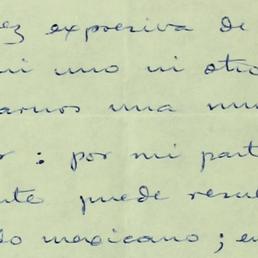 ez expresiva de
ni uno ni otro
arnos una mu
r : por mi part
nte puede resul
do mexicano ; en